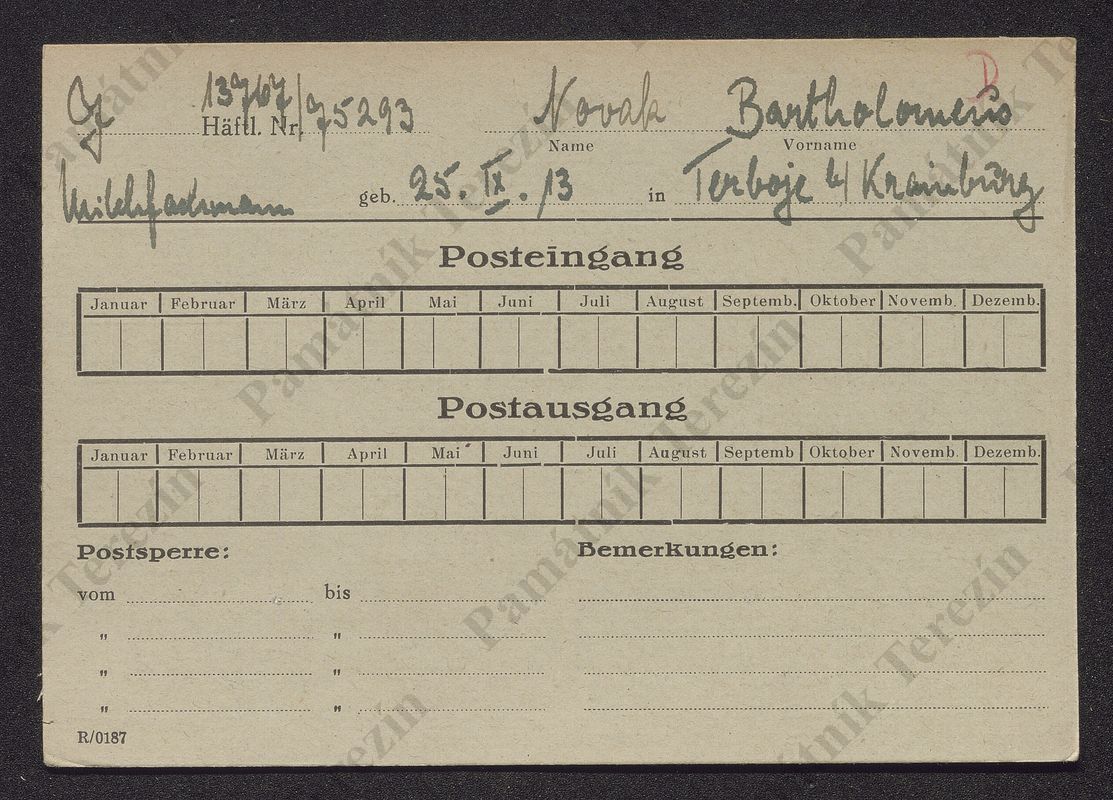 J 13767/75293 Novak Bartholomeus D
Häftl. Nr. Name Vorname
Milchfachmann geb. 25. IX. 13 in Terboje b/ Krainburg
Posteingang
Januar Februar März April Mai Juni Juli August Septemb. Oktober Novemb. Dezemb.
Postausgang
Januar Februar März April Mai Juni Juli August Septemb Oktober Novemb. Dezemb.
Postsperre: Bemerkungen:
vom bis
" "
" "
" "
R/0187
Památník Terezín